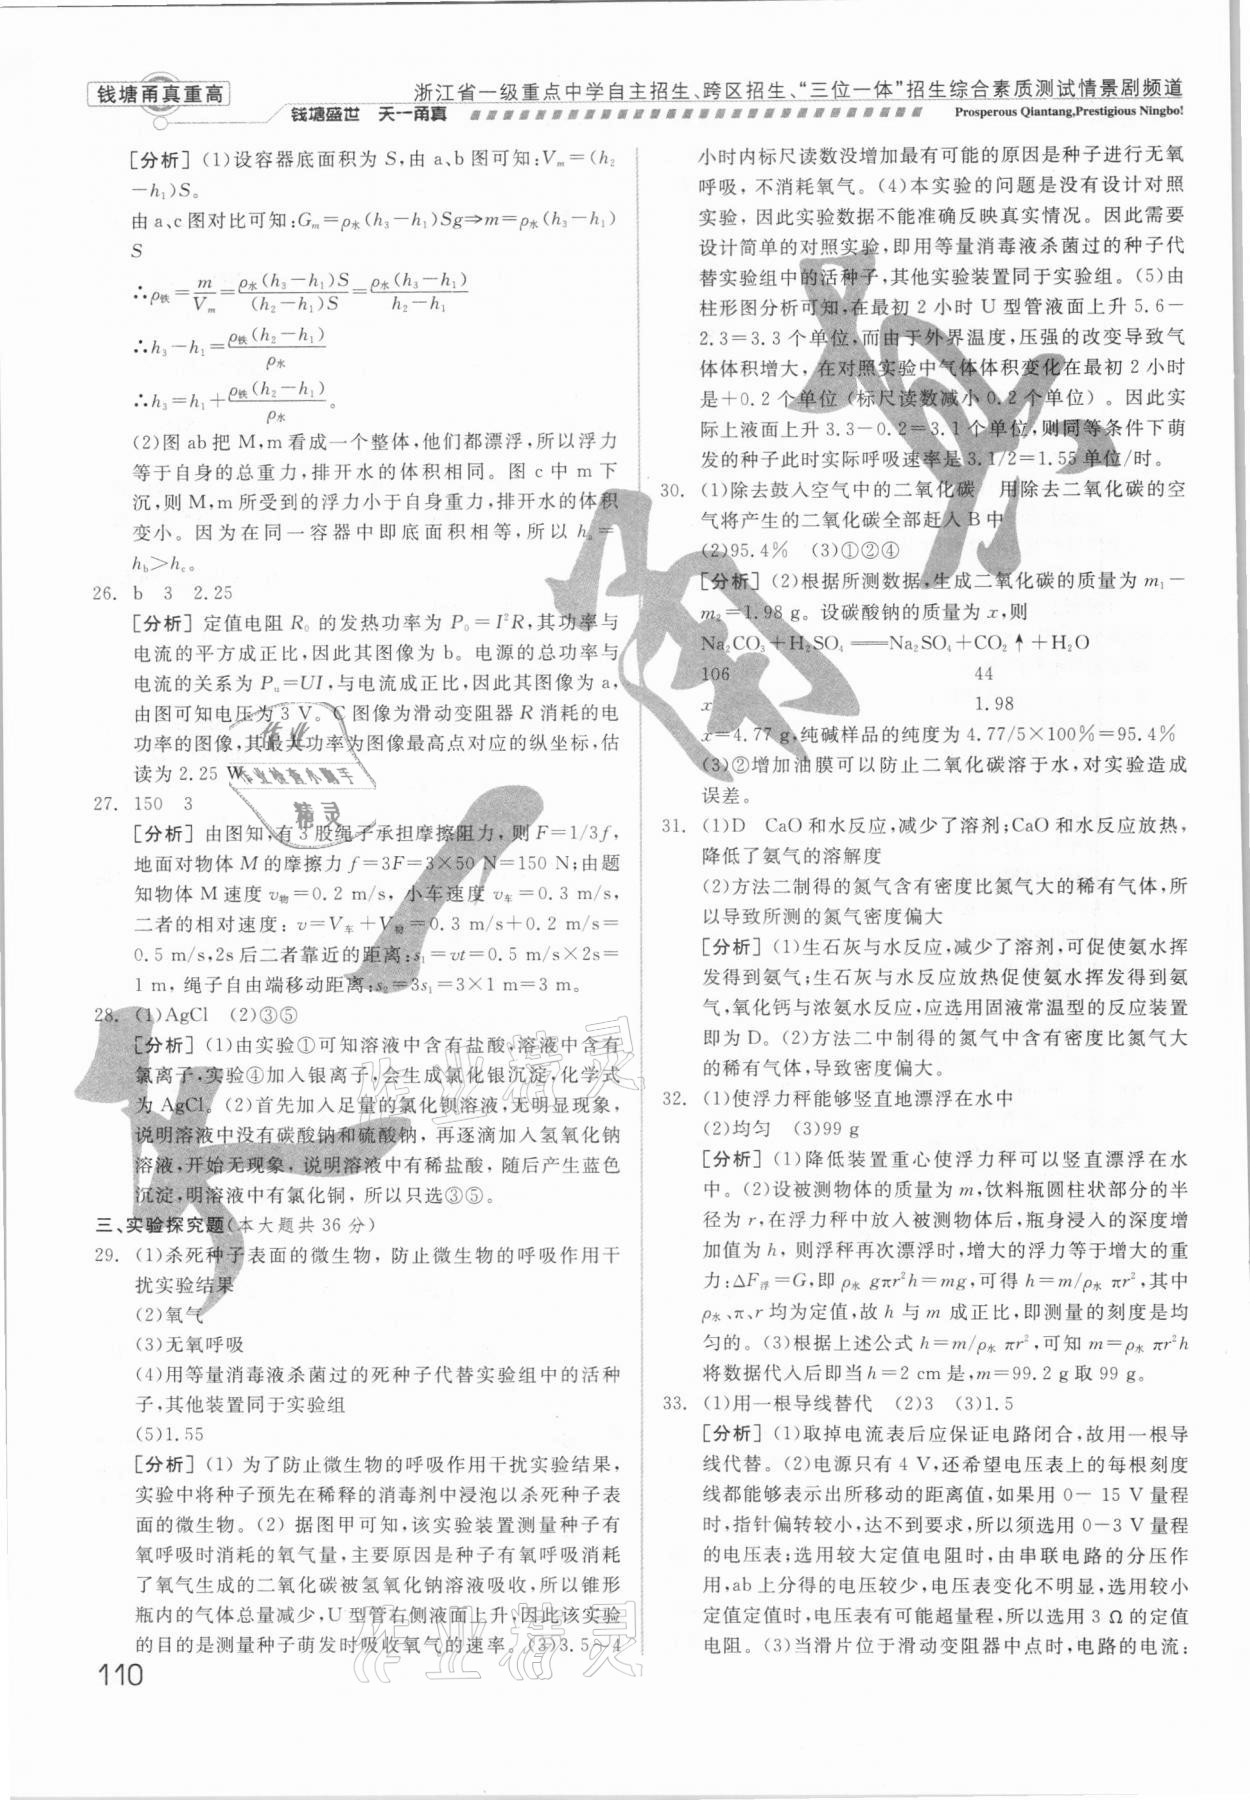 钱塘甬真重高
浙江省一级重点中学自主招生、跨区招生、“三位一体”招生综合素质测试情景剧频道
钱塘盛世 天一甬真
Prosperous Qiantang,Prestigious Ningbo!
[分析](1)设容器底面积为 S,由 a、b 图可知:Vₘ=(h₂
-h₁)S。
由 a、c 图对比可知:Gₘ=ρ水(h₃-h₁)Sg⇒m=ρ水(h₃-h₁)
S
∴ρ铁=m/Vₘ=ρ水(h₃-h₁)S/(h₂-h₁)S=ρ水(h₃-h₁)/h₂-h₁
∴h₃-h₁=ρ铁(h₂-h₁)/ρ水
∴h₃=h₁+ρ铁(h₂-h₁)/ρ水。
(2)图 ab 把 M,m 看成一个整体,他们都漂浮,所以浮力
等于自身的总重力,排开水的体积相同。图 c 中 m 下
沉,则 M,m 所受到的浮力小于自身重力,排开水的体积
变小。因为在同一容器中即底面积相等,所以 hₐ=
h_b>h_c。
26. b 3 2.25
[分析]定值电阻 R₀ 的发热功率为 P₀=I²R,其功率与
电流的平方成正比,因此其图像为 b。电源的总功率与
电流的关系为 Pᵤ=UI,与电流成正比,因此其图像为 a,
由图可知电压为 3 V。C 图像为滑动变阻器 R 消耗的电
功率的图像,其最大功率为图像最高点对应的纵坐标,估
读为 2.25 W
27. 150 3
[分析] 由图知,有 3 股绳子承担摩擦阻力,则 F=1/3f,
地面对物体 M 的摩擦力 f=3F=3×50 N=150 N;由题
知物体 M 速度 v物=0.2 m/s,小车速度 v车=0.3 m/s,
二者的相对速度:v=V车+V物=0.3 m/s+0.2 m/s=
0.5 m/s,2s 后二者靠近的距离:s₁=vt=0.5 m/s×2s=
1 m,绳子自由端移动距离:s₂=3s₁=3×1 m=3 m。
28. (1)AgCl (2)③⑤
[分析](1)由实验①可知溶液中含有盐酸,溶液中含有
氯离子,实验④加入银离子,会生成氯化银沉淀,化学式
为 AgCl。(2)首先加入足量的氯化钡溶液,无明显现象,
说明溶液中没有碳酸钠和硫酸钠,再逐滴加入氢氧化钠
溶液,开始无现象,说明溶液中有稀盐酸,随后产生蓝色
沉淀,明溶液中有氯化铜,所以只选③⑤。
三、实验探究题(本大题共 36 分)
29. (1)杀死种子表面的微生物,防止微生物的呼吸作用干
扰实验结果
(2)氧气
(3)无氧呼吸
(4)用等量消毒液杀菌过的死种子代替实验组中的活种
子,其他装置同于实验组
(5)1.55
[分析](1)为了防止微生物的呼吸作用干扰实验结果,
实验中将种子预先在稀释的消毒剂中浸泡以杀死种子表
面的微生物。(2)据图甲可知,该实验装置测量种子有
氧呼吸时消耗的氧气量,主要原因是种子有氧呼吸消耗
了氧气生成的二氧化碳被氢氧化钠溶液吸收,所以锥形
瓶内的气体总量减少,U 型管右侧液面上升,因此该实验
的目的是测量种子萌发时吸收氧气的速率。(3)3.5~4
110
小时内标尺读数没增加最有可能的原因是种子进行无氧
呼吸,不消耗氧气。(4)本实验的问题是没有设计对照
实验,因此实验数据不能准确反映真实情况。因此需要
设计简单的对照实验,即用等量消毒液杀菌过的种子代
替实验组中的活种子,其他实验装置同于实验组。(5)由
柱形图分析可知,在最初 2 小时 U 型管液面上升 5.6-
2.3=3.3 个单位,而由于外界温度,压强的改变导致气
体体积增大,在对照实验中气体体积变化在最初 2 小时
是+0.2 个单位(标尺读数减小 0.2 个单位)。因此实
际上液面上升 3.3-0.2=3.1 个单位,则同等条件下萌
发的种子此时实际呼吸速率是 3.1/2=1.55 单位/时。
30. (1)除去鼓入空气中的二氧化碳 用除去二氧化碳的空
气将产生的二氧化碳全部赶入 B 中
(2)95.4% (3)①②④
[分析](2)根据所测数据,生成二氧化碳的质量为 m₁-
m₂=1.98 g。设碳酸钠的质量为 x,则
Na₂CO₃+H₂SO₄══Na₂SO₄+CO₂↑+H₂O
106 44
x 1.98
x=4.77 g,纯碱样品的纯度为 4.77/5×100%=95.4%
(3)②增加油膜可以防止二氧化碳溶于水,对实验造成
误差。
31. (1)D CaO 和水反应,减少了溶剂;CaO 和水反应放热,
降低了氨气的溶解度
(2)方法二制得的氮气含有密度比氮气大的稀有气体,所
以导致所测的氮气密度偏大
[分析](1)生石灰与水反应,减少了溶剂,可促使氨水挥
发得到氨气;生石灰与水反应放热促使氨水挥发得到氨
气,氧化钙与浓氨水反应,应选用固液常温型的反应装置
即为 D。(2)方法二中制得的氮气中含有密度比氮气大
的稀有气体,导致密度偏大。
32. (1)使浮力秤能够竖直地漂浮在水中
(2)均匀 (3)99 g
[分析](1)降低装置重心使浮力秤可以竖直漂浮在水
中。(2)设被测物体的质量为 m,饮料瓶圆柱状部分的半
径为 r,在浮力秤中放入被测物体后,瓶身浸入的深度增
加值为 h,则浮秤再次漂浮时,增大的浮力等于增大的重
力:ΔF浮=G,即 ρ水 gπr²h=mg,可得 h=m/ρ水 πr²,其中
ρ水、π、r 均为定值,故 h 与 m 成正比,即测量的刻度是均
匀的。(3)根据上述公式 h=m/ρ水 πr²,可知 m=ρ水 πr²h
将数据代入后即当 h=2 cm 是,m=99.2 g 取 99 g。
33. (1)用一根导线替代 (2)3 (3)1.5
[分析](1)取掉电流表后应保证电路闭合,故用一根导
线代替。(2)电源只有 4 V,还希望电压表上的每根刻度
线都能够表示出所移动的距离值,如果用 0-15 V 量程
时,指针偏转较小,达不到要求,所以须选用 0-3 V 量程
的电压表;选用较大定值电阻时,由串联电路的分压作
用,ab 上分得的电压较少,电压表变化不明显,选用较小
定值定值时,电压表有可能超量程,所以选用 3 Ω 的定值
电阻。(3)当滑片位于滑动变阻器中点时,电路的电流:
作业
作业检查小助手
精灵
作业精灵
作业精灵
天一甬真